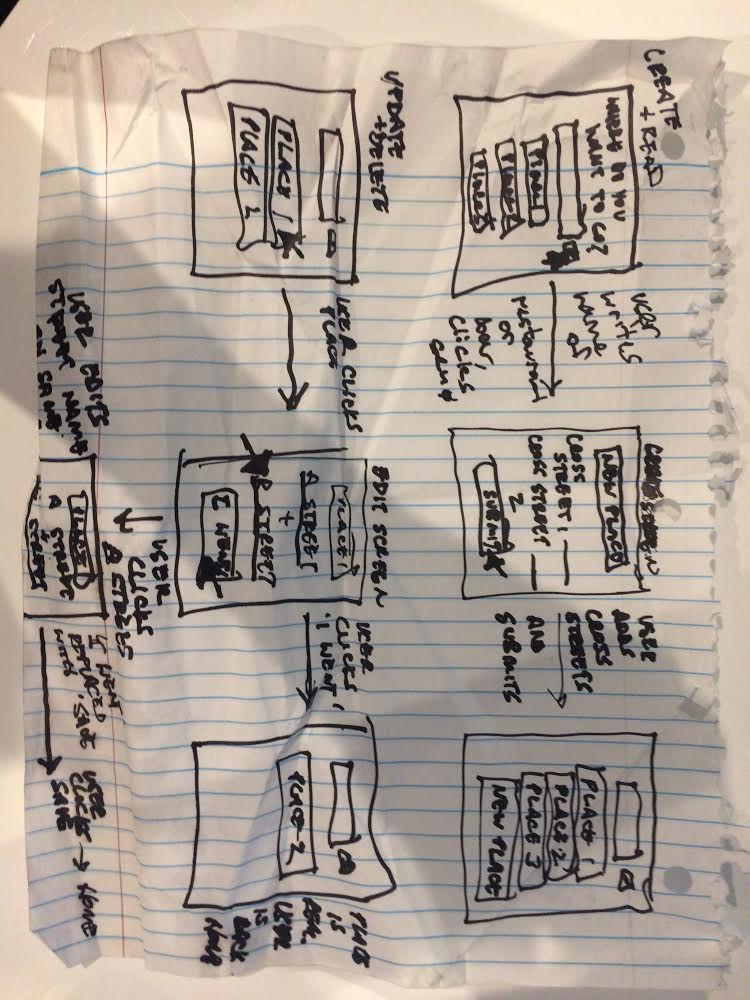 CREATE
+ READ
WHERE DO YOU
WANT TO GO?
PLACE 1
PLACE 2
PLACE 3
USER
WRITES
NAME
OF
restaurant
or
bar,
clicks
NEW PLACE
CROSS
STREET 1:
CROSS STREET
2
SUBMIT
USER
ADDS
CROSS
STREETS
AND
SUBMITS
PLACE 1
PLACE 2
PLACE 3
NEW PLACE
UPDATE
+ DELETE
PLACE 1
PLACE 2
USER CLICKS
PLACE
EDIT SCREEN
PLACE 1
A STREET
+
B STREET
I WENT
USER
CLICKS
'I WENT'
PLACE 2
PLACE
IS
USER
IS
BACK
USER
CLICKS
B STREET
USER EDITS
STREET NAME
PLACE 1
A STREET
+
STREET
I WENT
REPLACED
WITH SAVE
USER
CLICKS → HOME
SAVE